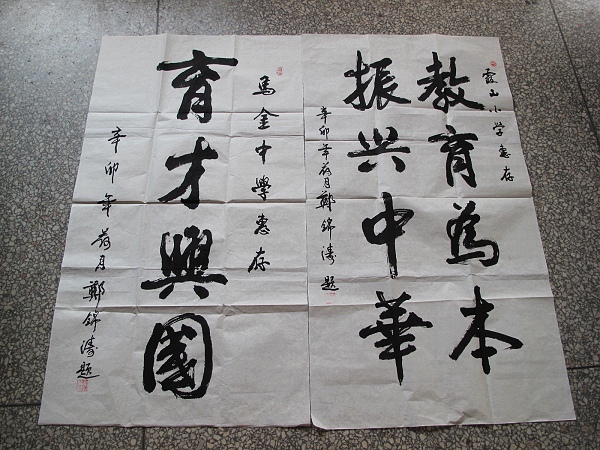 霞山小学惠存
教育為本
振兴中華
辛卯年荷月鄭錦濤題
馬金中學惠存
育才興國
辛卯年荷月鄭錦濤題